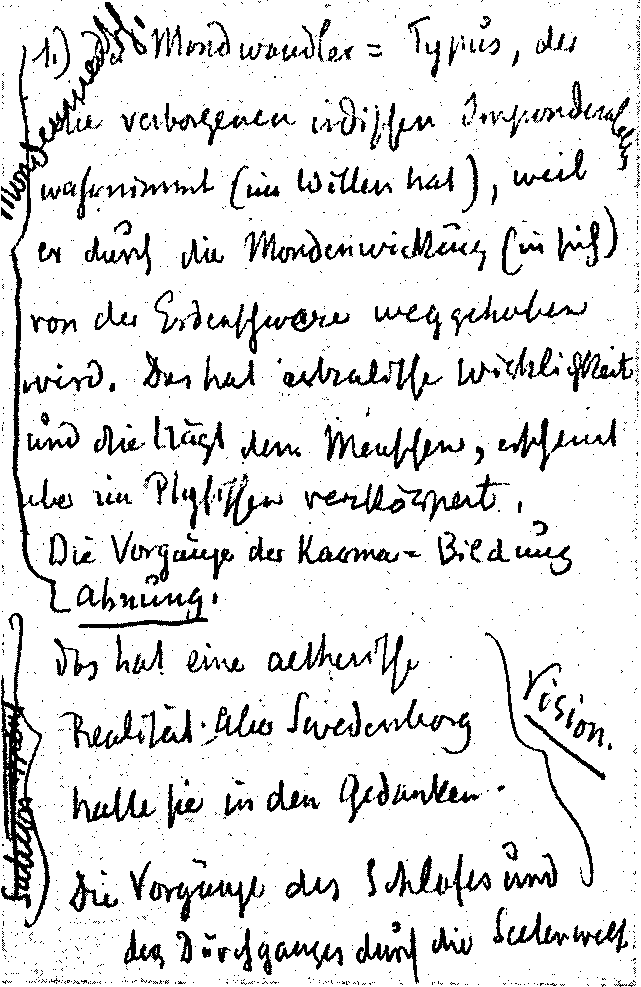 1.) der Mondwandler = Typus, der
die verborgenen irdischen Imponderabilien
wahrnimmt (im Willen hat), weil
er durch die Mondenwirkung (in sich)
von der Erdenschwere weggehoben
wird. Das hat astralische Wirklichkeit
und die trägt den Menschen, erscheint
aber im Physischen verkörpert.
Die Vorgänge der Karma = Bildung
Ahnung.
Das hat eine aetherische
Realität. Aber Swedenborg
hatte sie in den Gedanken.
Vision.
Die Vorgänge des Schlafes und
des Durchganges durch die Seelenwelt.